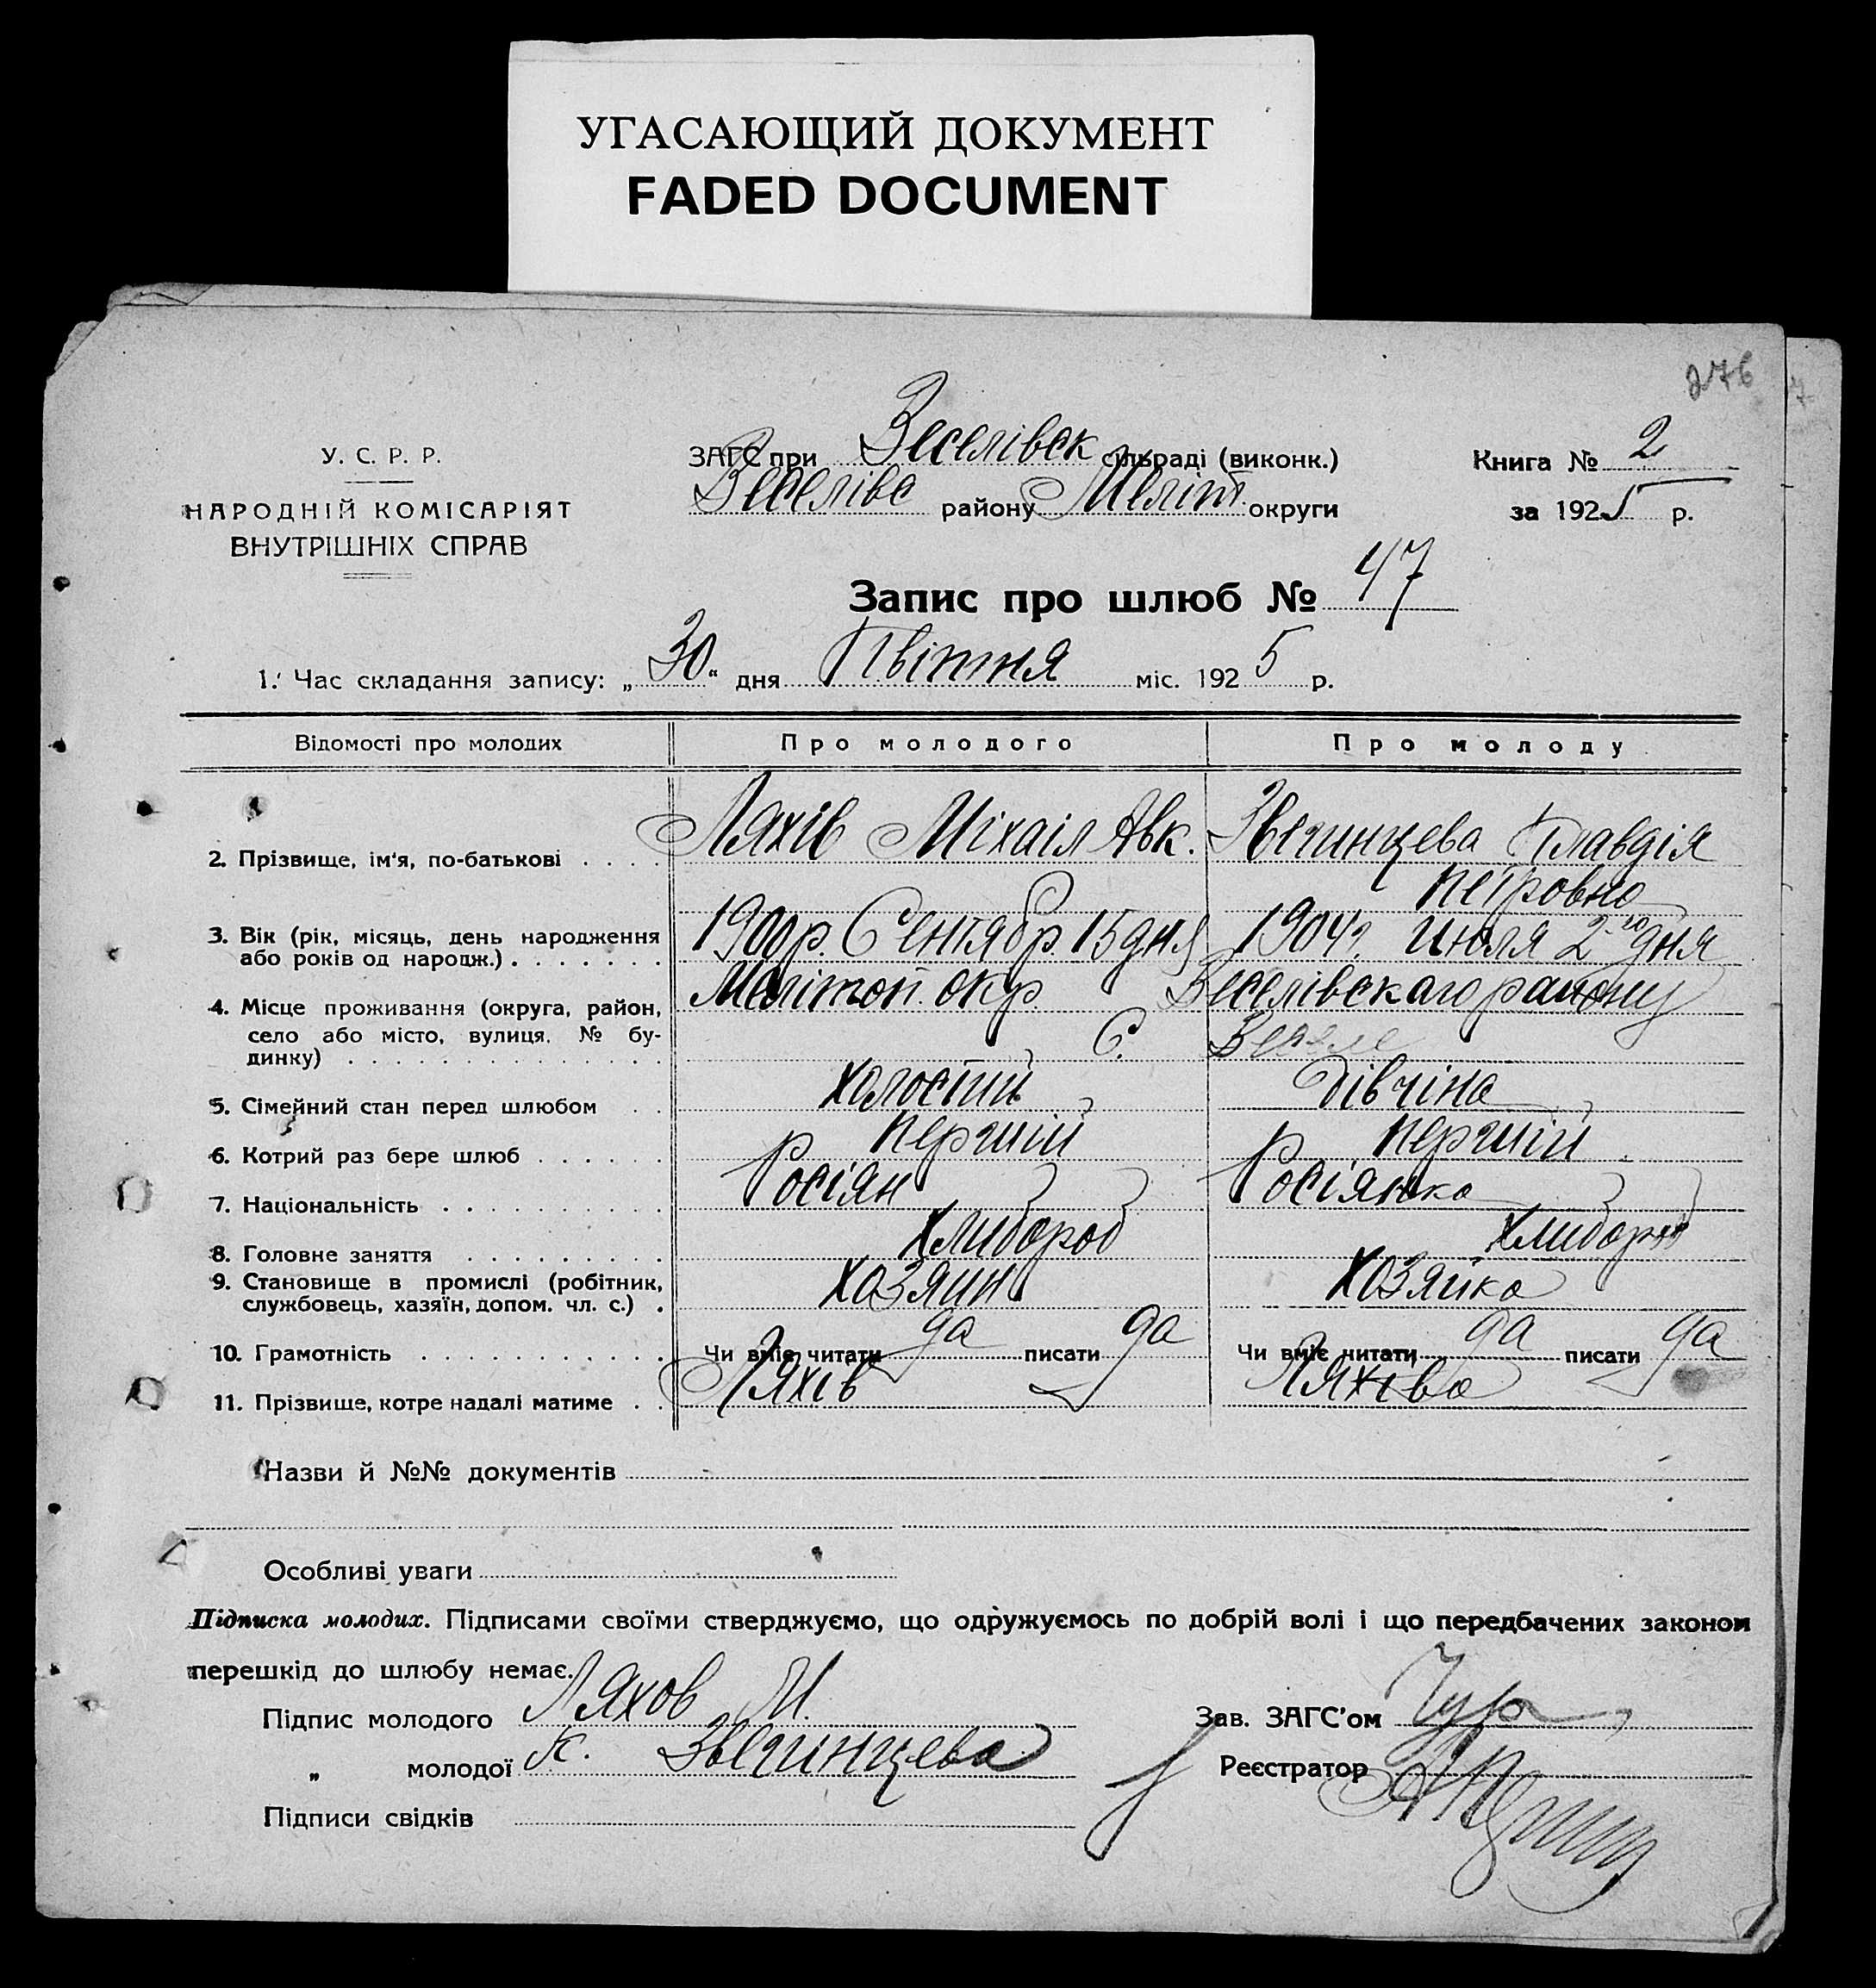 УГАСАЮЩИЙ ДОКУМЕНТ
FADED DOCUMENT
276
У. С. Р. Р.
НАРОДНІЙ КОМІСАРІЯТ
ВНУТРІШНІХ СПРАВ
ЗАГС при Веселівск сільраді (виконк.)
Веселівс району Меліт. округи
Книга № 2
за 1925 р.
Запис про шлюб № 47
1. Час складання запису: „30“ дня Квітня міс. 1925 р.
Відомості про молодих Про молодого Про молоду
2. Прізвище, ім'я, по-батькові . . . . Ляхів Міхаіл Авк. Звегинцева Клавдія
Петровна
3. Вік (рік, місяць, день народження 1900 р. Сентябр. 15 дня 1904 г. Июля 2-го дня
або років од народж.) . . . . . . .
4. Місце проживання (округа, район, Мелітоп. окр. Веселівскаго району
село або місто, вулиця, № бу- С. Веселе
динку) . . . . . . . . . . . . .
5. Сімейний стан перед шлюбом . . Холостий Дівчіна
6. Котрий раз бере шлюб . . . . . . Першій Першій
7. Національність . . . . . . . . . . Росіян Росіянка
8. Головне заняття . . . . . . . . . Хлибороб Хлибороб
9. Становище в промислі (робітник, Хозяин Хозяйка
службовець, хазяїн, допом. чл. с.) .
10. Грамотність . . . . . . . . . . . Чи вміє читати да писати да Чи вміє читати да писати да
11. Прізвище, котре надалі матиме . . Ляхів Ляхіва
Назви й №№ документів
Особливі уваги
Підписка молодих. Підписами своїми стверджуємо, що одружуємось по добрій волі і що передбачених законом
перешкід до шлюбу немає.
Підпис молодого Ляхов М.
„ молодої К. Звегинцева
Підписи свідків
Зав. ЗАГС'ом
Реєстратор